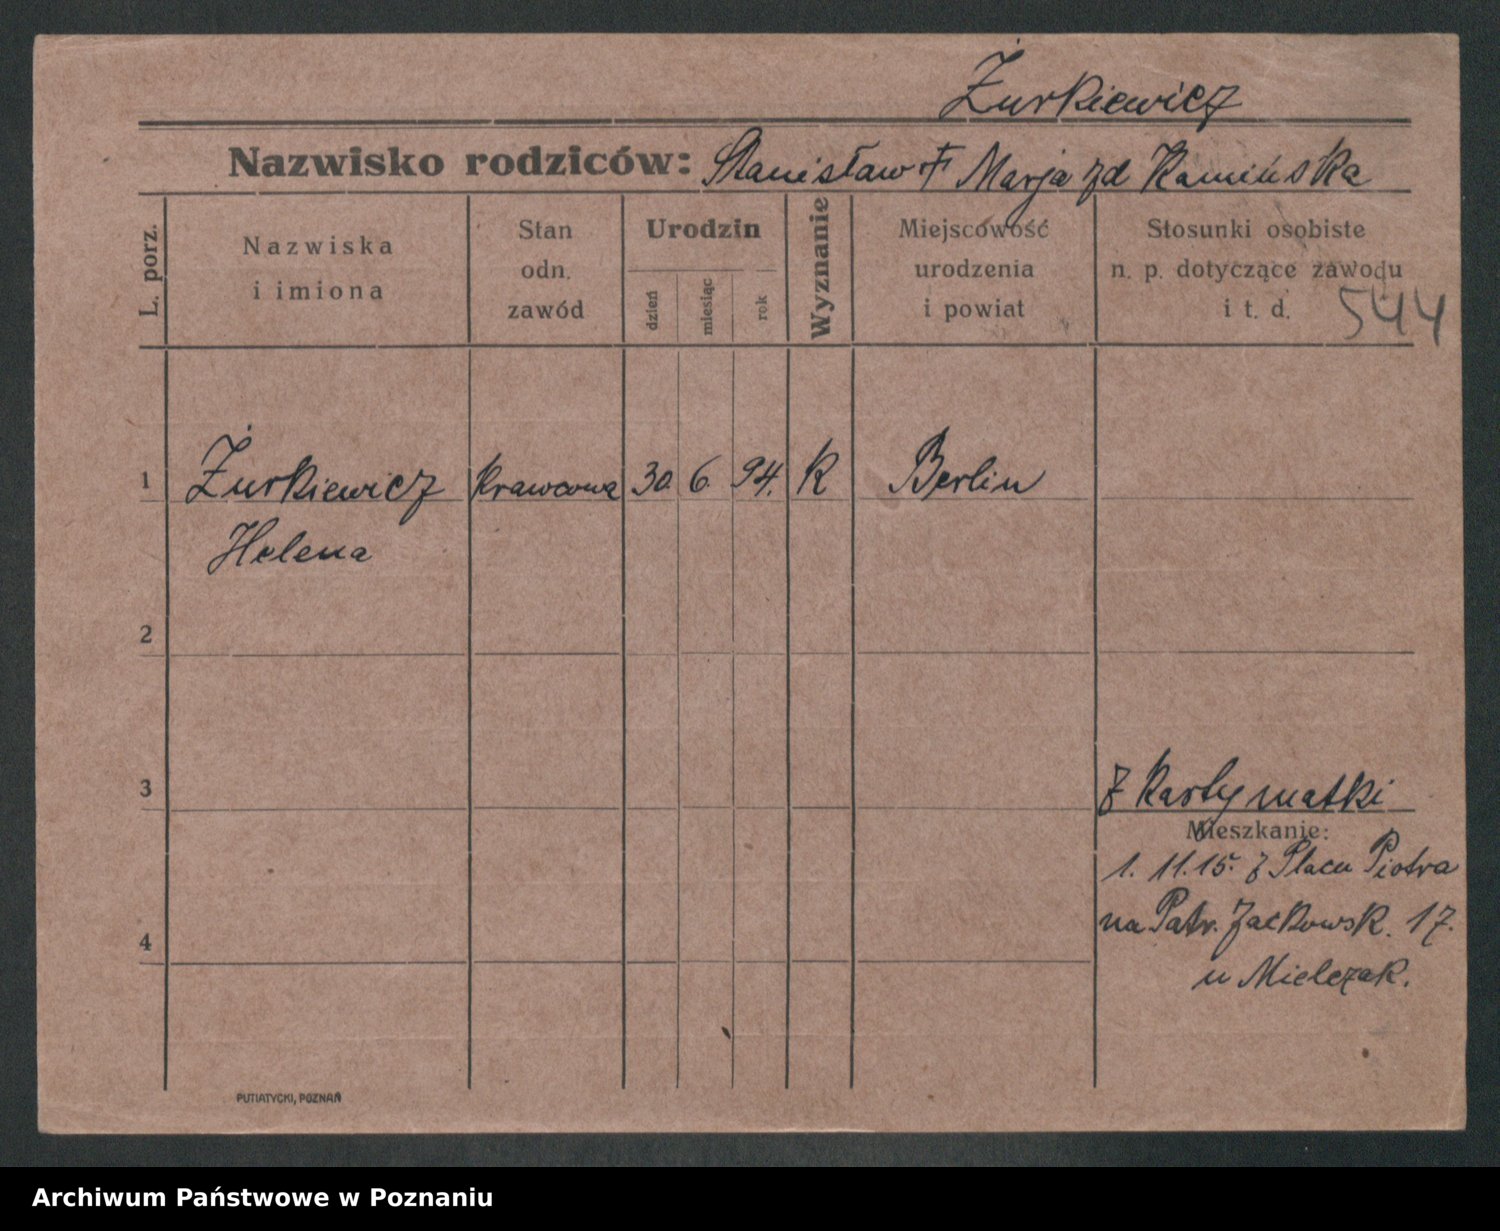 Żurkiewicz
Nazwisko rodziców: Stanisław † Marja zd Kamińska
L. porz.
Nazwiska
i imiona
Stan
odn.
zawód
Urodzin
dzień
miesiąc
rok
Wyznanie
Miejscowość
urodzenia
i powiat
Stosunki osobiste
n. p. dotyczące zawodu
i t. d.
544
1 Żurkiewicz krawcowa 30 6. 94. K Berlin
Helena
2
3
z karty matki
Mieszkanie:
1. 11. 15. z Placu Piotra
na Patr. Jackowsk. 17.
u Mielczak.
4
PUTIATYCKI, POZNAŃ
Archiwum Państwowe w Poznaniu